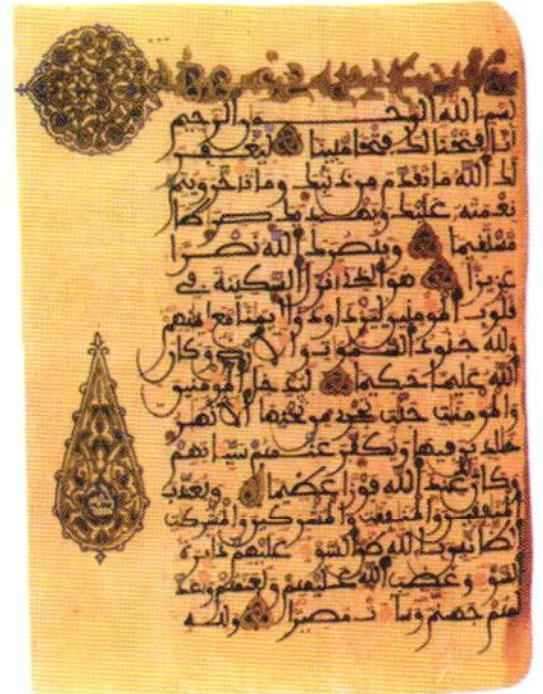 بسم الله الرحمن الرحيم
انا فتحنا لك فتحا مبينا ليغفر
لك الله ما تقدم من ذنبك وما تاخر ويتم
نعمته عليك ويهديك صرطا
مستقيما وينصرك الله نصرا
عزيزا هو الذي انزل السكينة في
قلوب المومنين ليزدادوا ايمنا مع ايمنهم
ولله جنود السموت والارض وكان
الله عليما حكيما ليدخل المومنين
والمومنت جنت تجري من تحتها الانهر
خلدين فيها ويكفر عنهم سياتهم
وكان عند الله فوزا عظيما ويعذب
المنفقين والمنفقت والمشركين والمشركت
الظانين بالله ظن السوء عليهم دايرة
السوء وغضب الله عليهم ولعنهم واعد
لهم جهنم وساءت مصيرا ولله